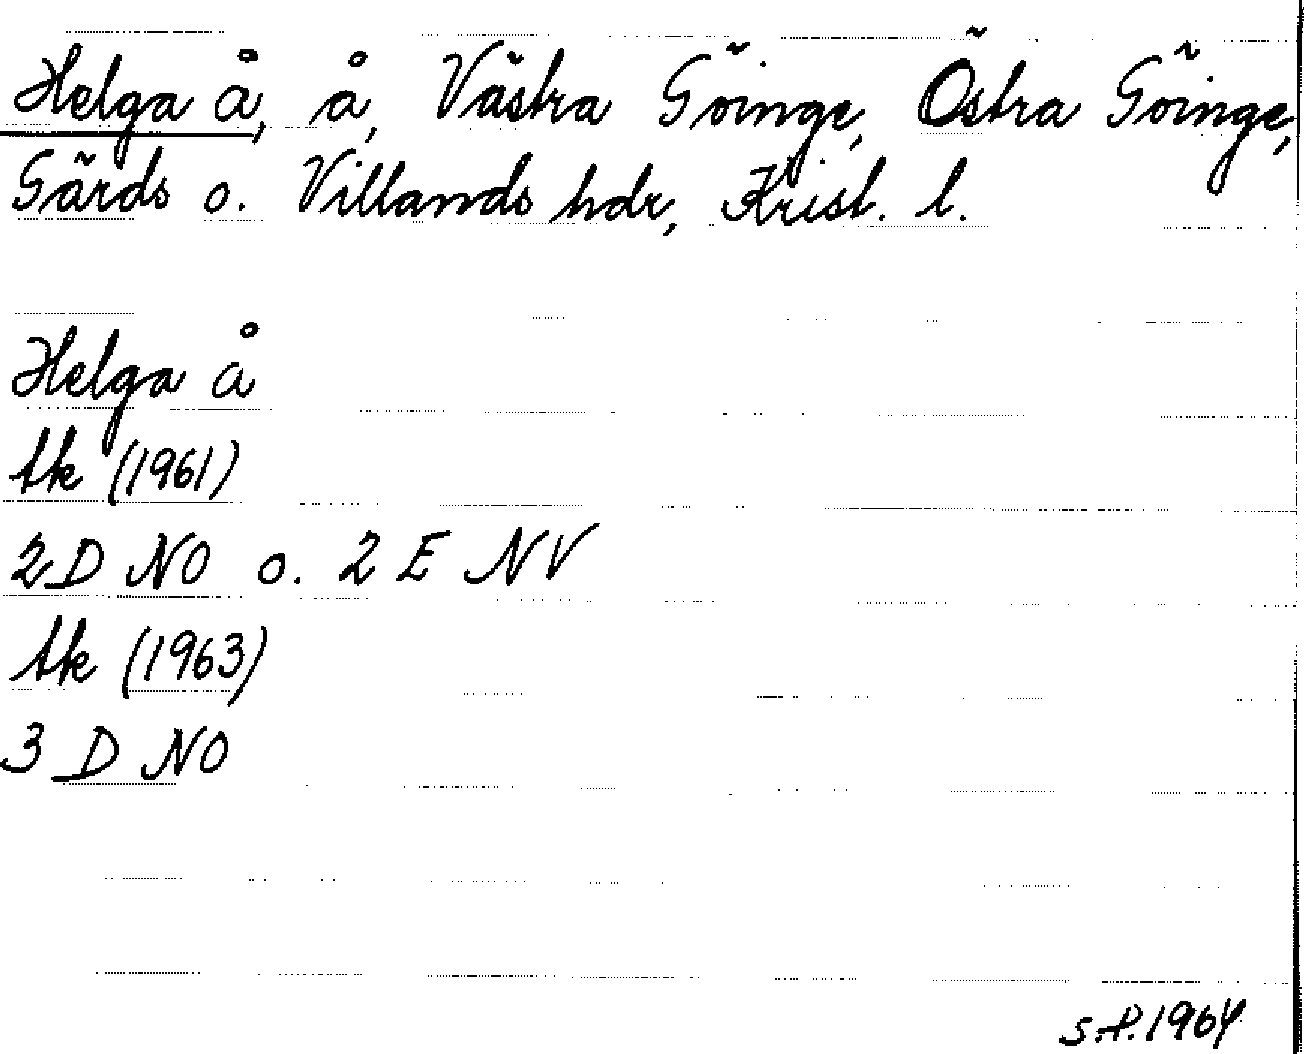 Helga å, å, Västra Göinge, Östra Göinge,
Gärds o. Villands hdr, Krist. l.
Helga å
tk (1961)
2D NO o. 2 E NV
tk (1963)
3 D NO
S.P. 1964